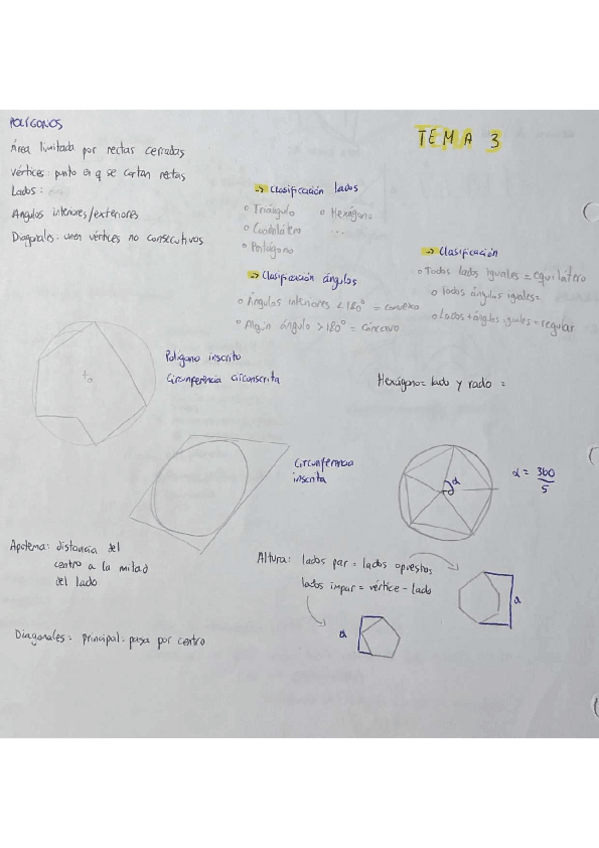 POLÍGONOS
TEMA 3
Área limitada por rectas cerradas
Vértices: punto en q se cortan rectas
Lados:
Ángulos interiores/exteriores
Diagonales: unen vértices no consecutivos
→ Clasificación lados
o Triángulo o Hexágono
o Cuadrilátero ...
o Pentágono
→ Clasificación ángulos
o Ángulos interiores < 180° = convexo
o Algún ángulo > 180° = cóncavo
→ Clasificación
o Todos lados iguales = equilátero
o Todos ángulos iguales =
o Lados + ángulos iguales = regular
Polígono inscrito
Circunferencia circunscrita
Hexágono = lado y radio =
Circunferencia
inscrita
α
α = 360
5
Apotema: distancia del
centro a la mitad
del lado
Altura: lados par = lados opuestos
lados impar = vértice - lado
a
a
Diagonales = principal: pasa por centro